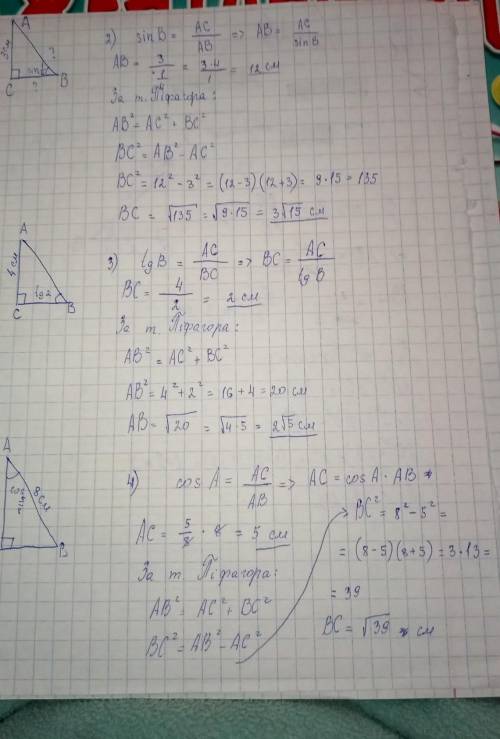 A
3см
?
sin
C
?
B
2) sin B = AC/AB => AB = AC/sin B
AB = 3/(1/4) = 3·4/1 = 12 см
За т. Піфагора:
AB² = AC² + BC²
BC² = AB² - AC²
BC² = 12² - 3² = (12-3)(12+3) = 9·15 = 135
BC = √135 = √9·15 = 3√15 см
A
4 см
C
tg 2
B
3) tg B = AC/BC => BC = AC/tg B
BC = 4/2 = 2 см
За т. Піфагора:
AB² = AC² + BC²
AB² = 4² + 2² = 16 + 4 = 20 см
AB = √20 = √4·5 = 2√5 см
A
cos
8 см
B
4) cos A = AC/AB => AC = cos A · AB
AC = 5/8 · 8 = 5 см
За т. Піфагора:
AB² = AC² + BC²
BC² = AB² - AC²
BC² = 8² - 5² =
= (8-5)(8+5) = 3·13 =
= 39
BC = √39 см